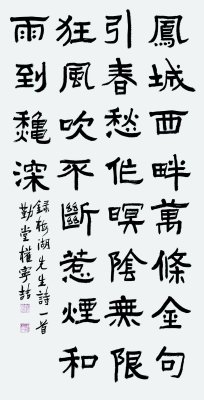 鳳城西畔萬條金句
引春愁作暝陰無限
狂風吹不斷惹煙和
雨到龝深
錄梅湖先生詩一首
勤堂權寧喆